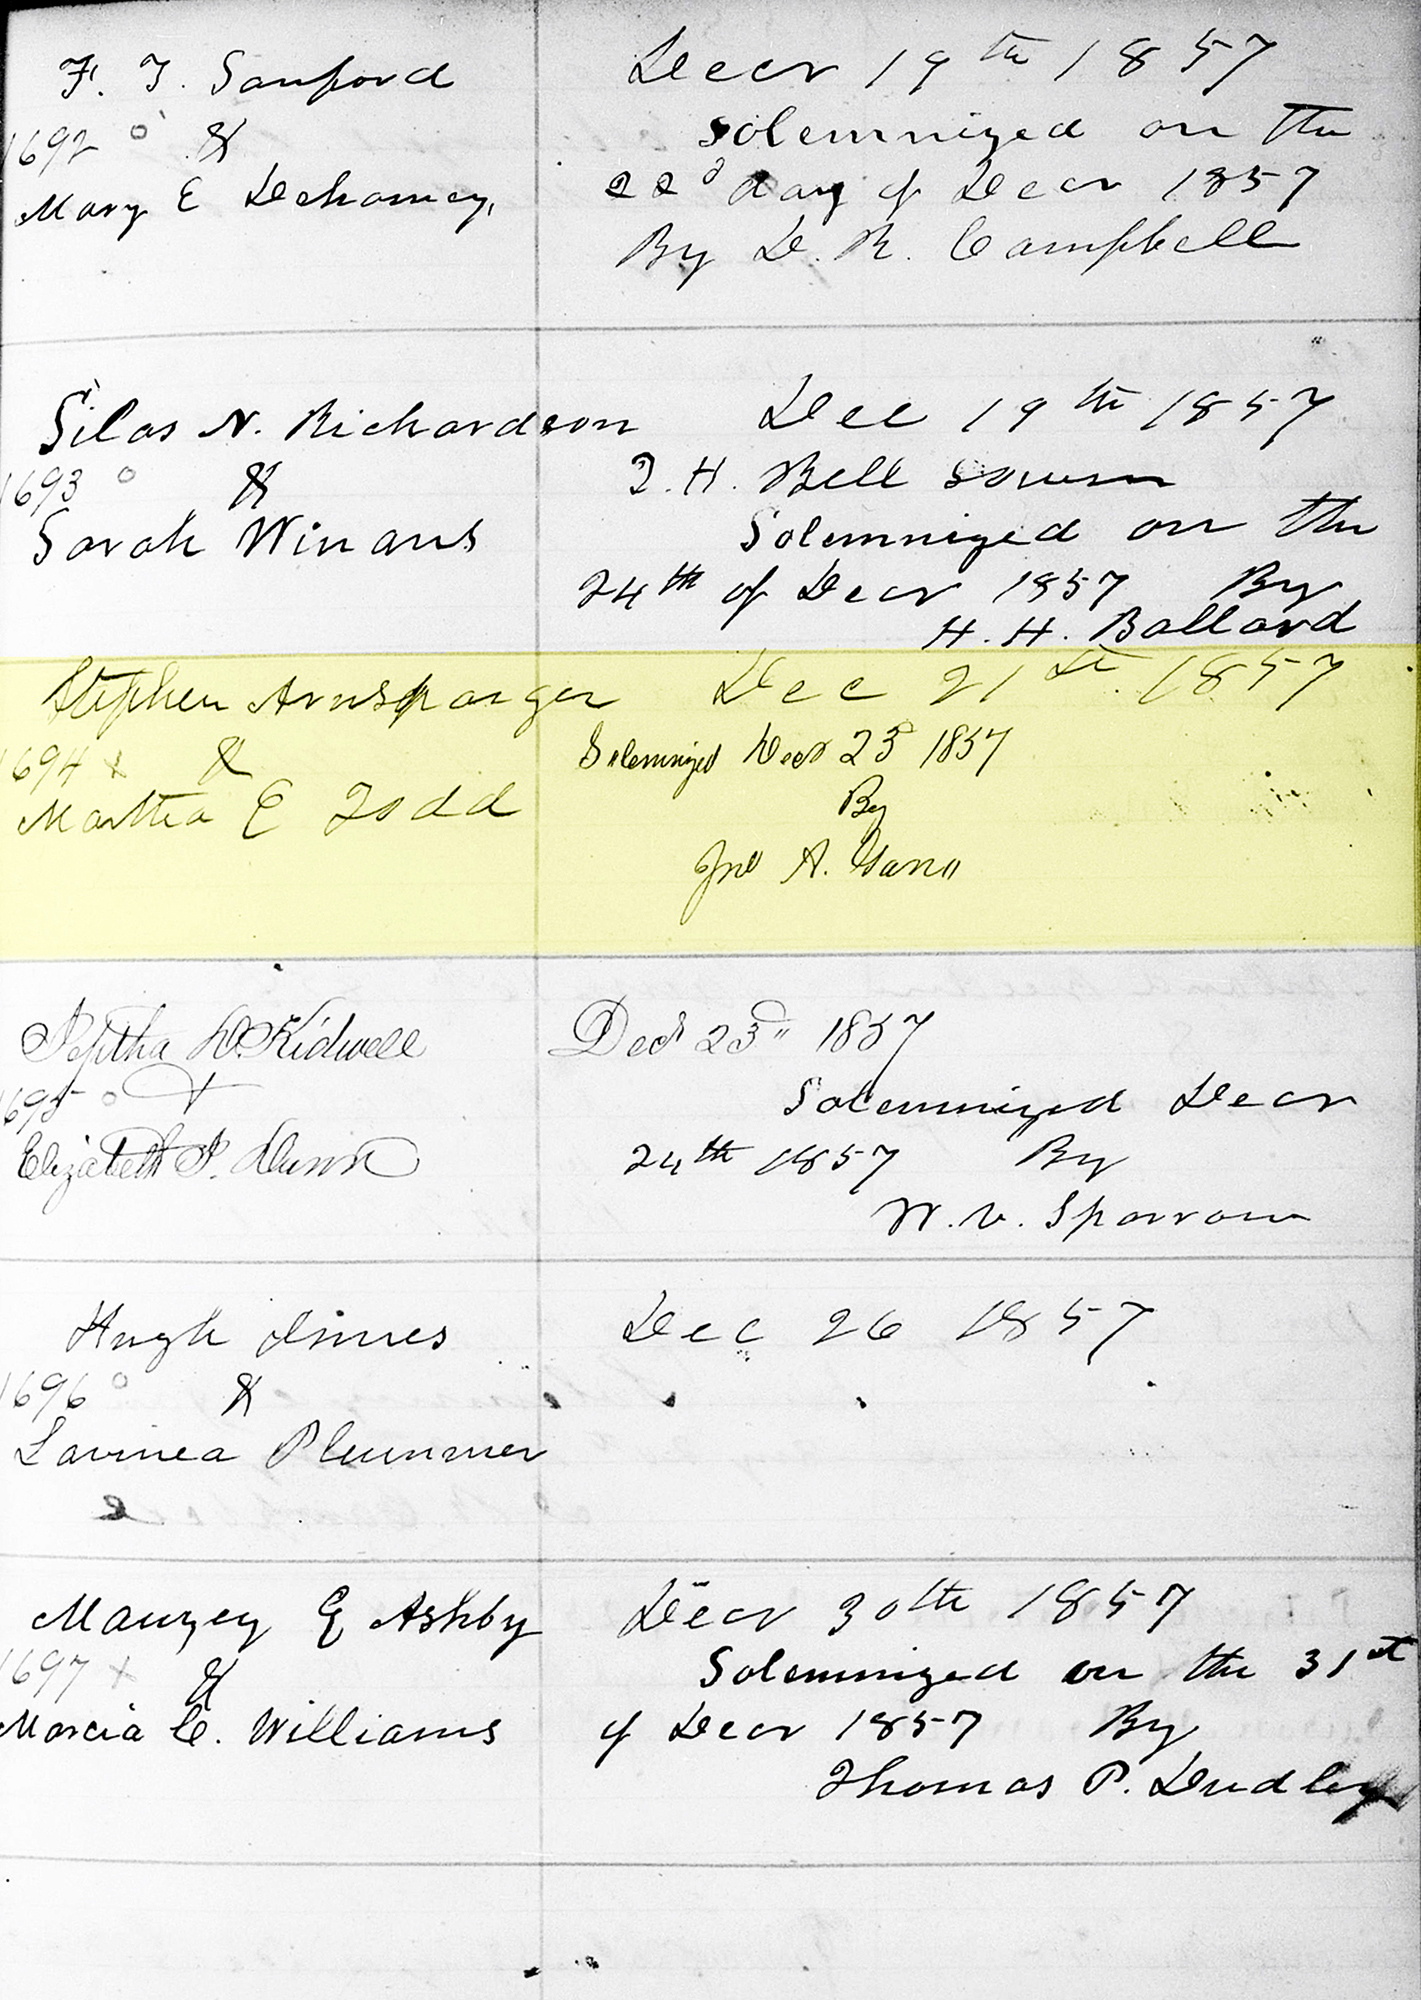 F. T. Sanford
1692 o &
Mary E Dehoney,
Decr 19th 1857
Solemnized on the
22d day of Decr 1857
By D. R. Campbell
Silas N. Richardson
1693 o &
Sarah Winans
Dec 19th 1857
J. H. Bell sworn
Solemnized on the
24th of Decr 1857 By
H. H. Ballard
Stephen Arnsparger
1694 x &
Martha E Todd
Dec 21st 1857
Solemnized Decr 23d 1857
By
Jno A. Gano
Jeptha D. Kidwell
1695 o &
Elizabeth J. Dunn
Decr 23d" 1857
Solemnized Decr
24th 1857 By
W. V. Sparrow
Hugh Innes
1696 o &
Lavinea Plummer
Dec 26 1857
Mauzey Q Ashby
1697 x &
Marcia C. Williams
Decr 30th 1857
Solemnized on the 31st
of Decr 1857 By
Thomas P. Dudley